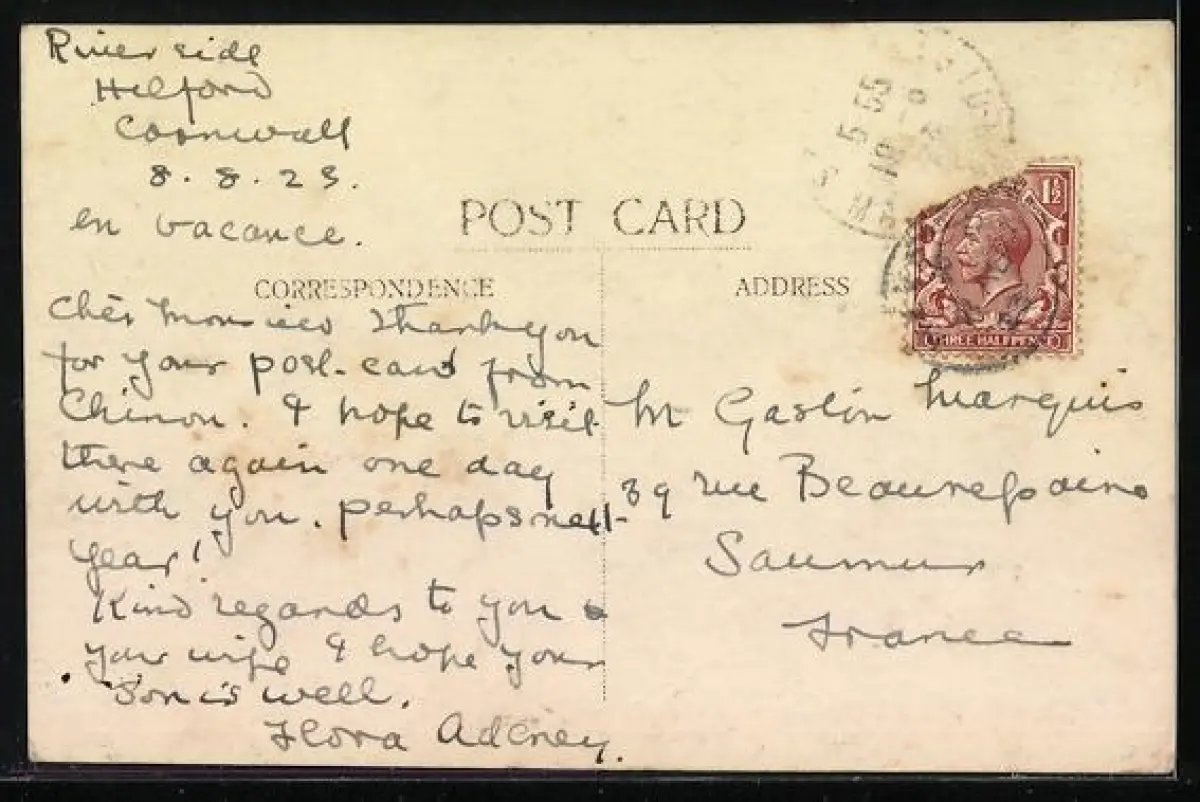 River side
Helford
Cornwall
8.8.23.
en vacance.
POST CARD
CORRESPONDENCE
ADDRESS
Cher Monsieur Thank you
for your post-card from
Chinon. I hope to visit
there again one day
with you. perhaps next
year!
Kind regards to you &
your wife I hope your
Son is well.
Flora Adeney.
M Gaston Marquis
39 rue Beaurepaire
Saumur
France
1½
THREE HALFPENCE
5 55